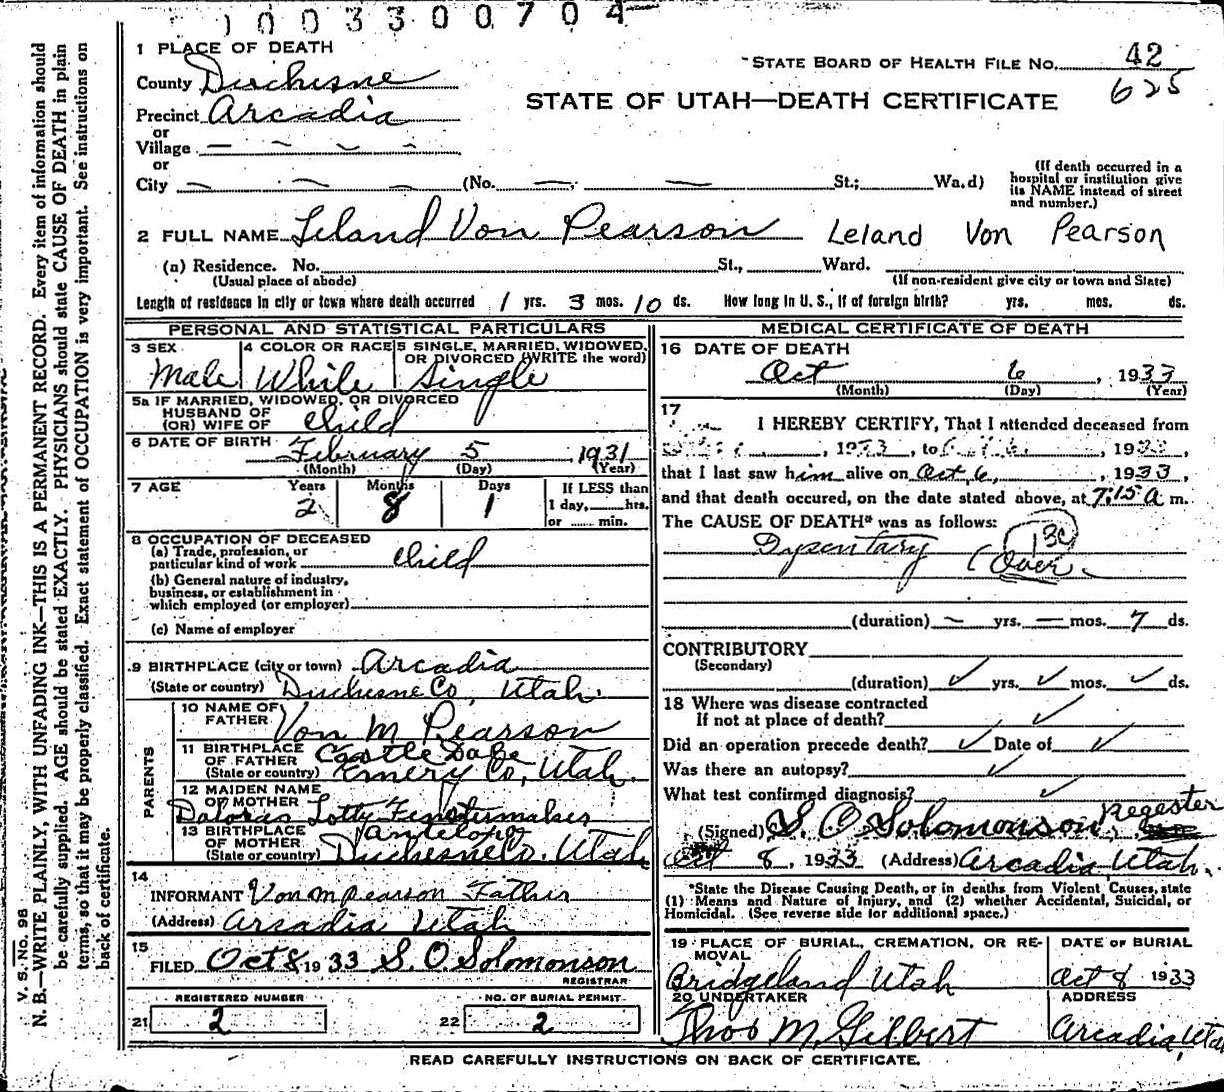 1003300704
1 PLACE OF DEATH
County Duchesne
Precinct Arcadia
or
Village — - - -
or
City — - - (No. — — St.; Wa.d)
STATE BOARD OF HEALTH FILE NO. 42
625
STATE OF UTAH—DEATH CERTIFICATE
(If death occurred in a
hospital or institution give
its NAME instead of street
and number.)
2 FULL NAME Leland Von Pearson Leland Von Pearson
(a) Residence. No. St., Ward.
(Usual place of abode) (If non-resident give city or town and State)
Length of residence in city or town where death occurred 1 yrs. 3 mos. 10 ds. How long in U. S., if of foreign birth? yrs. mos. ds.
PERSONAL AND STATISTICAL PARTICULARS
3 SEX
Male
4 COLOR OR RACE
White
5 SINGLE, MARRIED, WIDOWED,
OR DIVORCED (WRITE the word)
Single
5a IF MARRIED, WIDOWED, OR DIVORCED
HUSBAND OF
(OR) WIFE OF child
6 DATE OF BIRTH February 5, 1931
(Month) (Day) (Year)
7 AGE Years Months Days If LESS than
2 8 1 1 day, hrs.
or min.
8 OCCUPATION OF DECEASED
(a) Trade, profession, or
particular kind of work child
(b) General nature of industry,
business, or establishment in
which employed (or employer)
(c) Name of employer
9 BIRTHPLACE (city or town) Arcadia
(State or country) Duchesne Co, Utah.
PARENTS
10 NAME OF
FATHER Von M Pearson
11 BIRTHPLACE
OF FATHER Castle Dale
(State or country) Emery Co, Utah.
12 MAIDEN NAME
OF MOTHER
Lotty
13 BIRTHPLACE
OF MOTHER Antelope
(State or country) Duchesne Co. Utah
14
INFORMANT Von M Pearson Father
(Address) Arcadia Utah
15
FILED Oct 8 1933 S. O. Solomonson
REGISTRAR
REGISTERED NUMBER NO. OF BURIAL PERMIT
21 2 22 2
MEDICAL CERTIFICATE OF DEATH
16 DATE OF DEATH
Oct 6, 1933
(Month) (Day) (Year)
17
I HEREBY CERTIFY, That I attended deceased from
, 1933, to , 1933,
that I last saw him alive on Oct 6, , 1933,
and that death occured, on the date stated above, at 7:15 a m.
The CAUSE OF DEATH* was as follows:
13c
Dysentary (Over
(duration) — yrs. — mos. 7 ds.
CONTRIBUTORY
(Secondary)
(duration) ✓ yrs. ✓ mos. ✓ ds.
18 Where was disease contracted
If not at place of death? ✓
Did an operation precede death? ✓ Date of ✓
Was there an autopsy? ✓
What test confirmed diagnosis? ✓
(Signed) S. O. Solomonson Regester
Oct 8, 1933 (Address) Arcadia Utah.
*State the Disease Causing Death, or in deaths from Violent Causes, state
(1) Means and Nature of Injury, and (2) whether Accidental, Suicidal, or
Homicidal. (See reverse side for additional space.)
19 PLACE OF BURIAL, CREMATION, OR RE-
MOVAL
Bridgeland Utah
DATE OF BURIAL
Oct 8 1933
20 UNDERTAKER
Thos M. Gilbert
ADDRESS
Arcadia, Utah
READ CAREFULLY INSTRUCTIONS ON BACK OF CERTIFICATE.
V. S. No. 98
N. B.—WRITE PLAINLY, WITH UNFADING INK—THIS IS A PERMANENT RECORD. Every item of information should
be carefully supplied. AGE should be stated EXACTLY. PHYSICIANS should state CAUSE OF DEATH in plain
terms, so that it may be properly classified. Exact statement of OCCUPATION is very important. See instructions on
back of certificate.